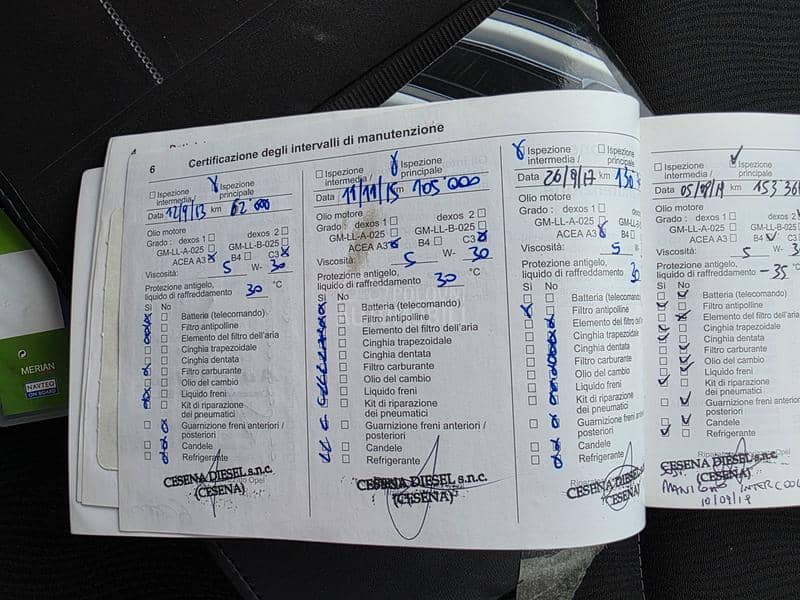 6 Certificazione degli intervalli di manutenzione
Ispezione intermedia /
Ispezione principale
Data 12/9/13 km 62'000
Olio motore
Grado: dexos 1 dexos 2
GM-LL-A-025 GM-LL-B-025
ACEA A3 B4 C3
Viscosità: 5 W- 30
Protezione antigelo,
liquido di raffreddamento 30 °C
Sì No
Batteria (telecomando)
Filtro antipolline
Elemento del filtro dell'aria
Cinghia trapezoidale
Cinghia dentata
Filtro carburante
Olio del cambio
Liquido freni
Kit di riparazione
dei pneumatici
Guarnizione freni anteriori /
posteriori
Candele
Refrigerante
CESENA DIESEL s.n.c.
(CESENA)
Ispezione intermedia /
Ispezione principale
Data 11/11/15 km 105'000
Olio motore
Grado: dexos 1 dexos 2
GM-LL-A-025 GM-LL-B-025
ACEA A3 B4 C3
Viscosità: 5 W- 30
Protezione antigelo,
liquido di raffreddamento 30 °C
Sì No
Batteria (telecomando)
Filtro antipolline
Elemento del filtro dell'aria
Cinghia trapezoidale
Cinghia dentata
Filtro carburante
Olio del cambio
Liquido freni
Kit di riparazione
dei pneumatici
Guarnizione freni anteriori /
posteriori
Candele
Refrigerante
CESENA DIESEL s.n.c.
(CESENA)
Ispezione intermedia /
Ispezione principale
Data 26/9/17 km
Olio motore
Grado: dexos 1
GM-LL-A-025
ACEA A3 B4
Viscosità: 5
Protezione antigelo,
liquido di raffreddamento
Sì No
Batteria (telecomando
Filtro antipolline
Elemento del filtro de
Cinghia trapezoidale
Cinghia dentata
Filtro carburante
Olio del cambio
Liquido freni
Kit di riparazione
dei pneumatici
Guarnizione freni ante
posteriori
Candele
Refrigerante
CESENA DIESEL
(CESENA)
Ispezione intermedia /
Ispezione principale
Data 05/09/19 km
Olio motore
Grado: dexos 1 dexos 2
GM-LL-A-025 GM-LL-B-025
ACEA A3 B4 C3
Viscosità: 5 W-
Protezione antigelo,
liquido di raffreddamento -35 °C
Sì No
Batteria (telecomando)
Filtro antipolline
Elemento del filtro dell'aria
Cinghia trapezoidale
Cinghia dentata
Filtro carburante
Olio del cambio
Liquido freni
Kit di riparazione
dei pneumatici
Guarnizione freni anteriori
posteriori
Candele
Refrigerante
CESENA DIESEL s.n.c.
(CESENA)
INTERCOOL
10/09/19
MERIAN
NAVTEQ
ON BOARD